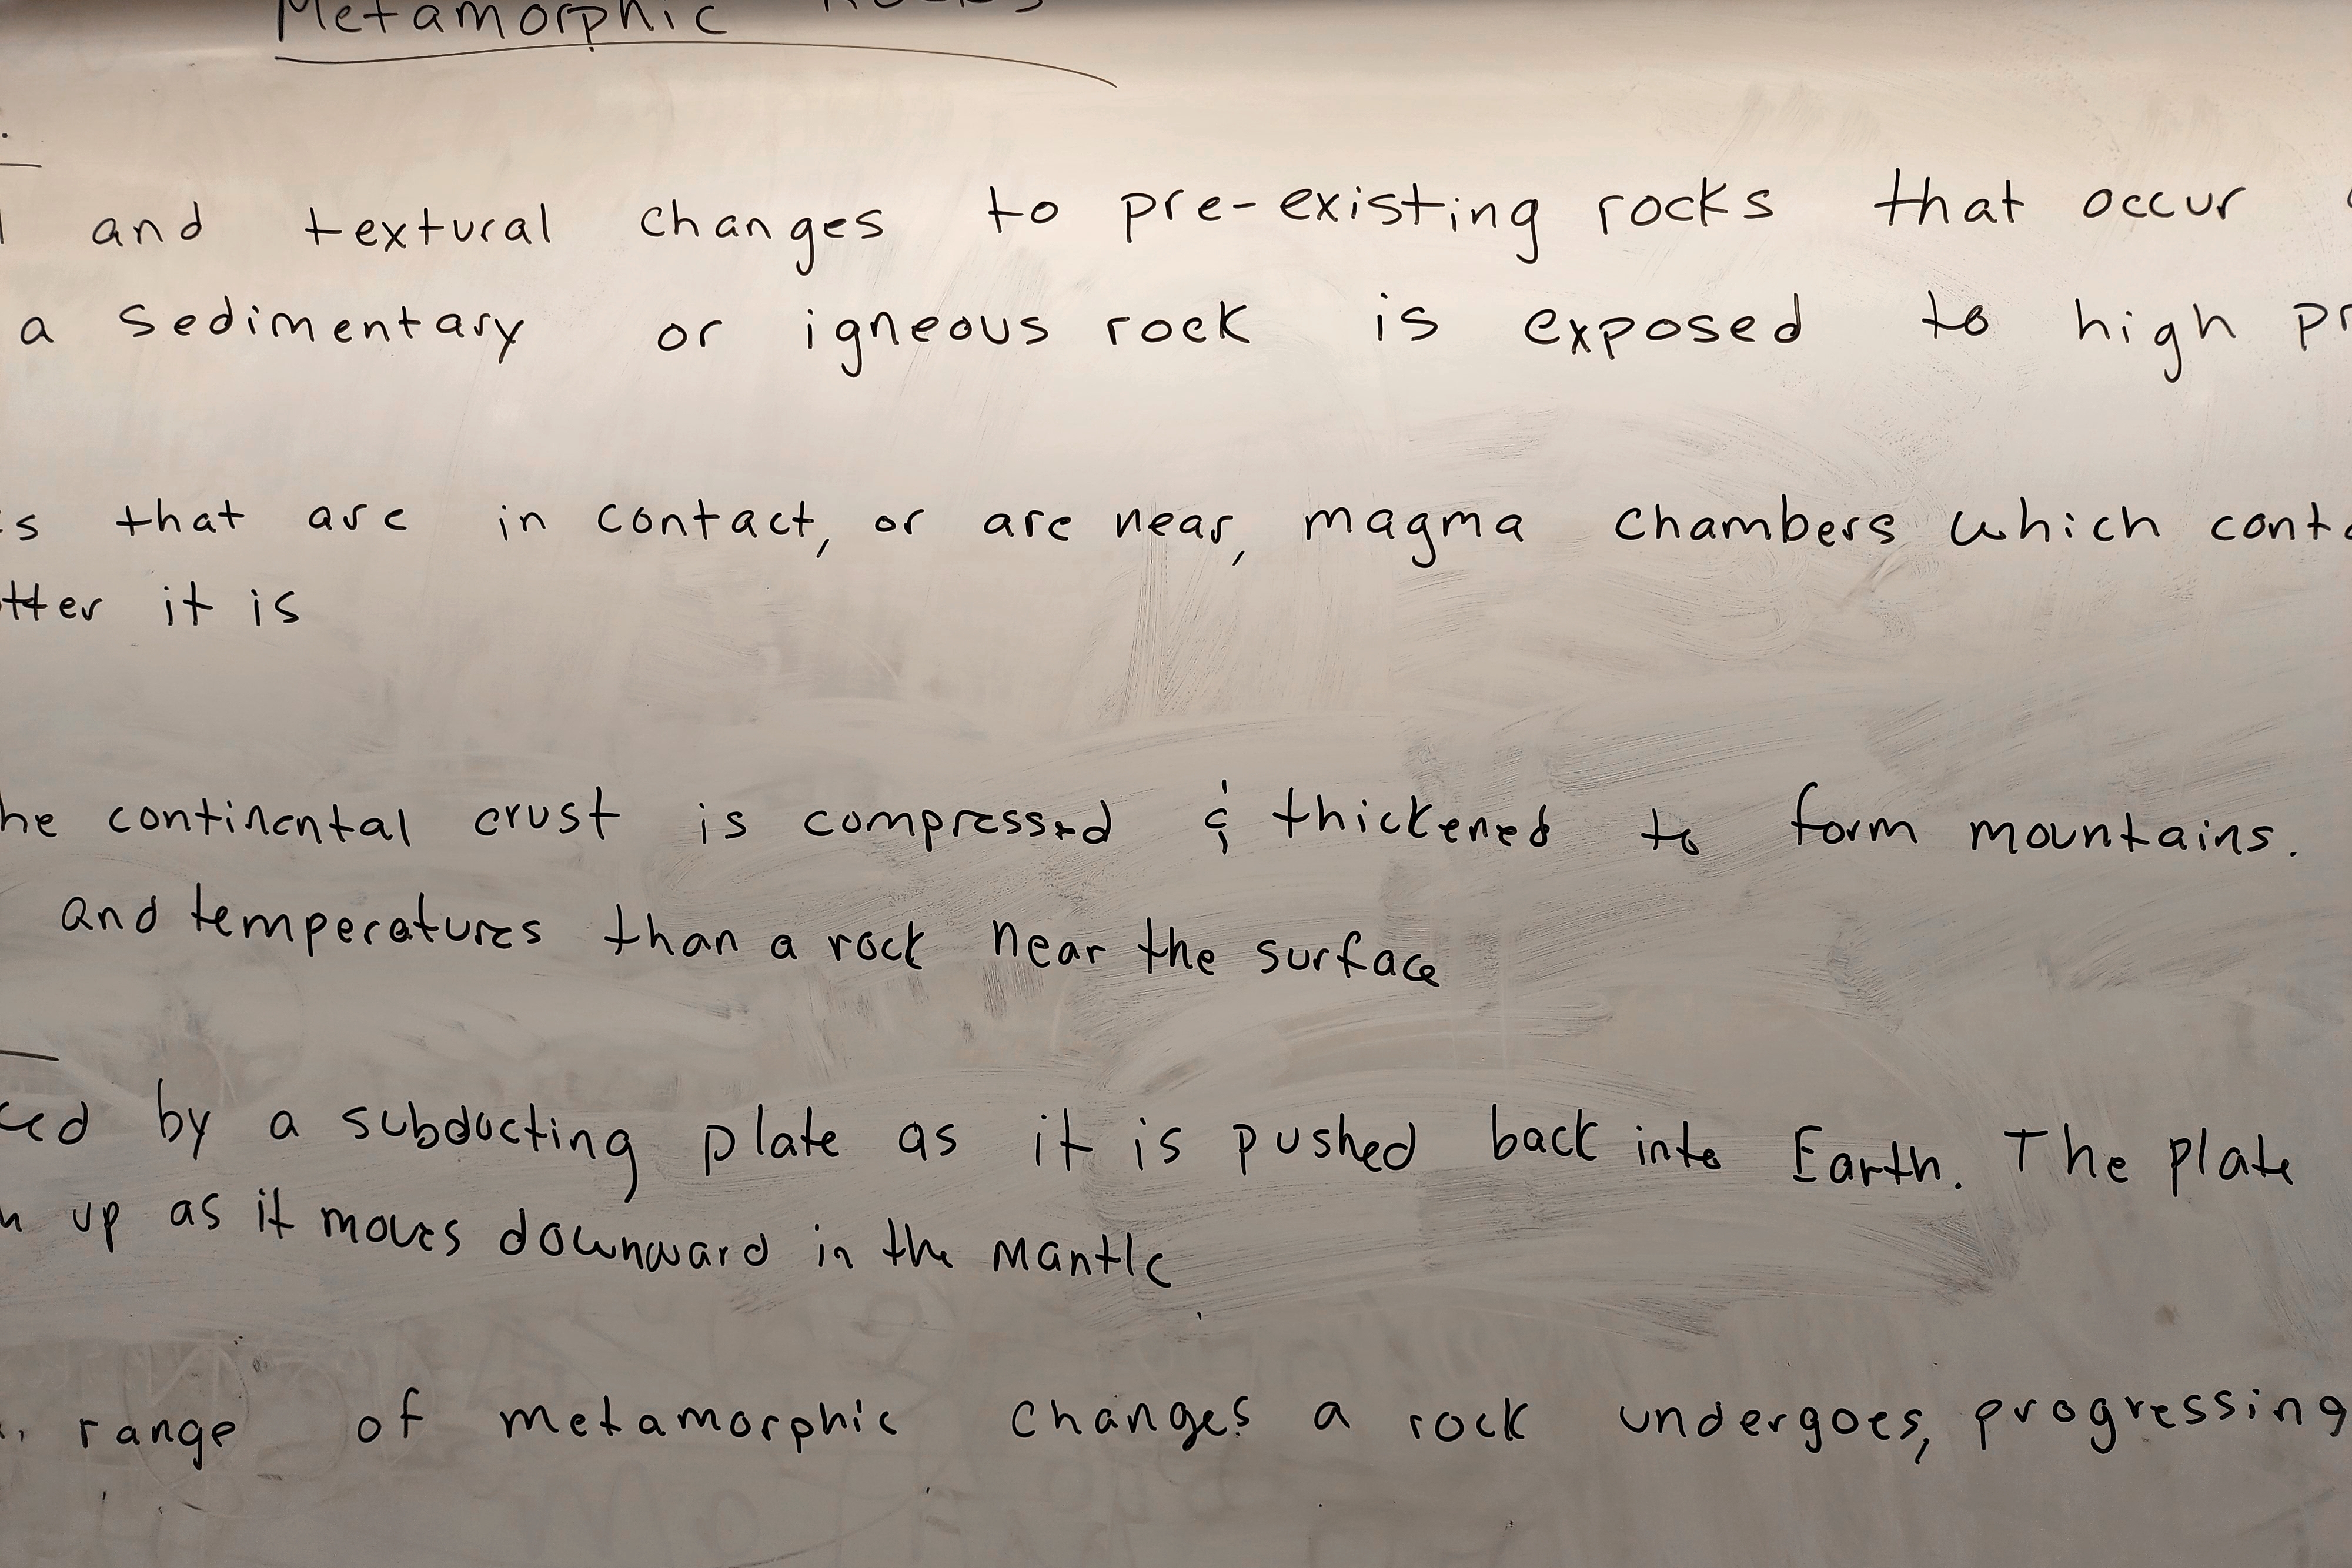 Metamorphic Rocks
and textural changes to pre-existing rocks that occur
a sedimentary or igneous rock is exposed to high
that are in contact, or are near, magma chambers which
it is
continental crust is compressed & thickened to form mountains.
and temperatures than a rock near the surface
by a subducting plate as it is pushed back into Earth. The plate
up as it moves downward in the mantle
range of metamorphic changes a rock undergoes, progressing